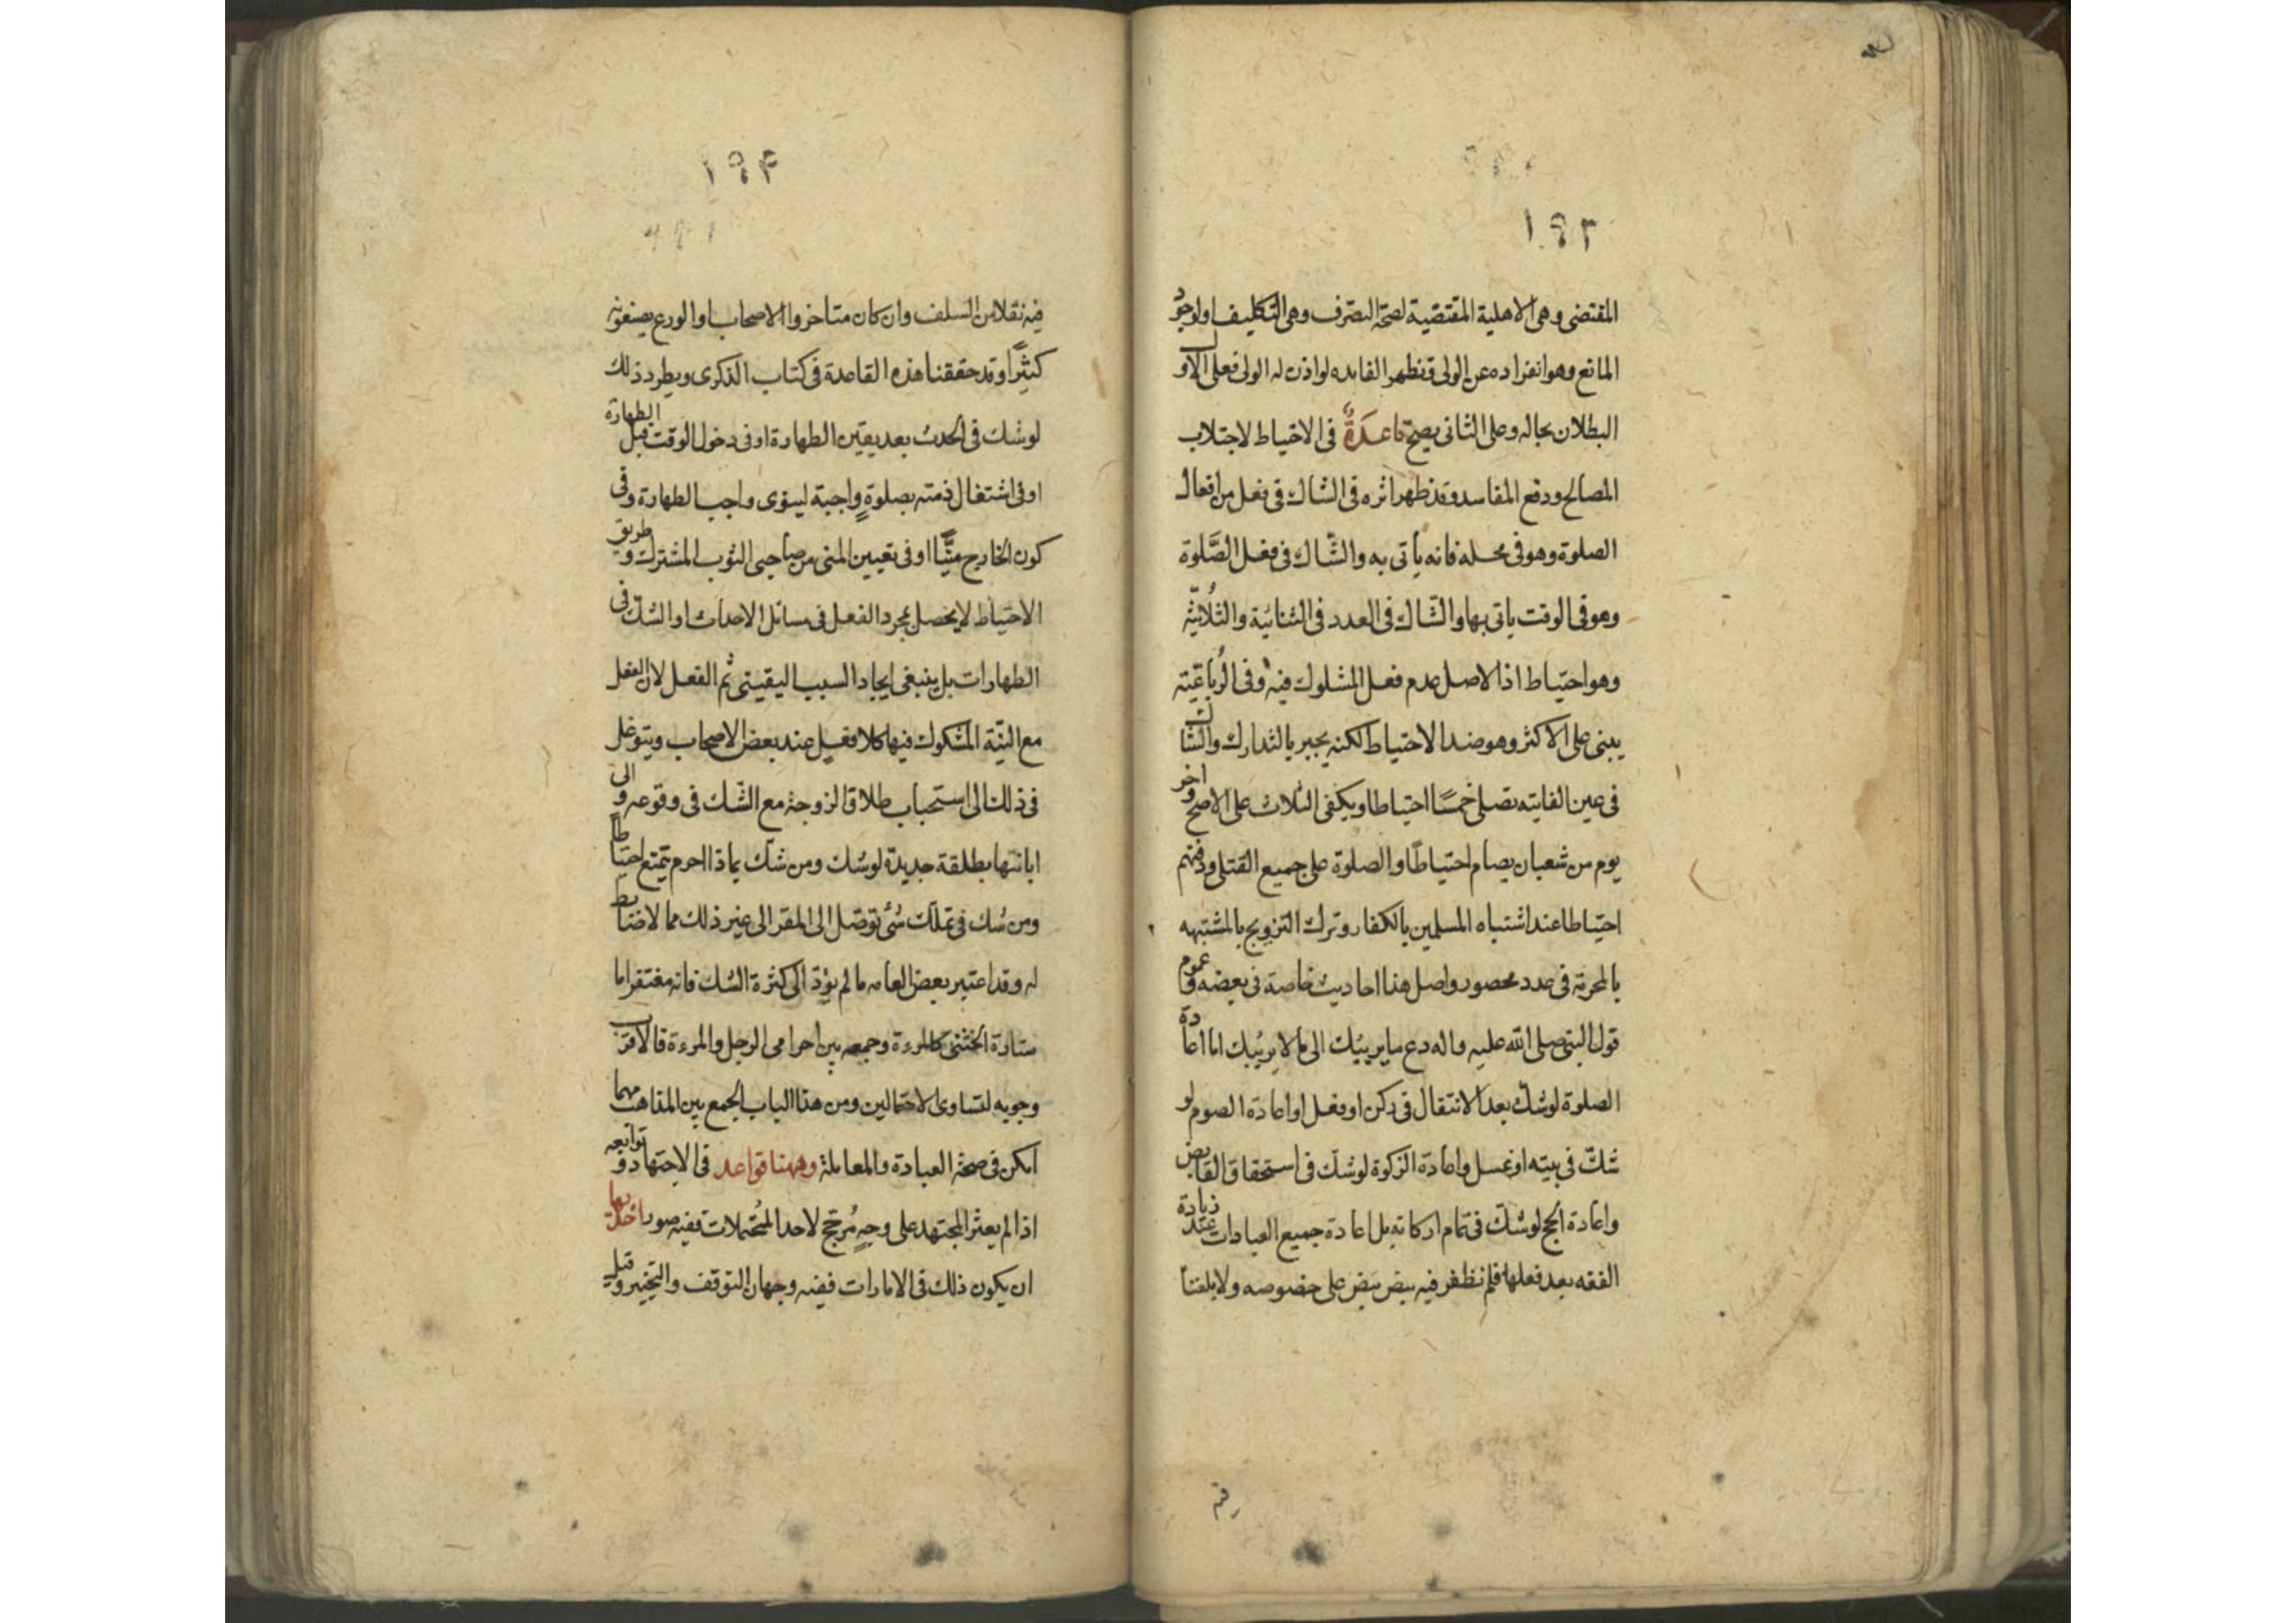 ١٩٣
المقتضى وهى الاهلية المقتضية لصحة التصرف وهى التكليف او لوجود
المانع وهو انفراده عن الولى فتظهر الفايده لو اذن له الولى فعلى الاول
البطلان بحاله وعلى الثانى يصح قاعدةٌ فى الاحتياط لاجتلاب
المصالح ودفع المفاسد وقد ظهر اثره فى الشاك فى فعل من افعال
الصلوة وهو فى محله فانه يأتى به والشّاك فى فعل الصَّلوة
وهو فى الوقت ياتى بها والشّاك فى العدد فى الثنائية والثُلاثيّة
وهو احتياط اذ الاصل عدم فعل المشكوك فيه وفى الرُباعيّة
يبنى على الاكثر وهو ضد الاحتياط لكنه يجبر بالتدارك والشاك
فى عين الفايته تصلى خمسًا احتياطا ويكفى الثلاث على الاصح واخر
يوم من شعبان يصام احتياطًا والصلوة على جميع القتلى ودفنهم
احتياطا عند اشتباه المسلمين بالكفار وترك التزويج بالمشتبهه
بالمحرمة فى عدد محصور واصل هذا احاديث خاصة فى بعضه وعموم
قول النبى صلى الله عليه واله دع ما يريبك الى ما لا يريبك اما اعادة
الصلوة لو شك بعد الانتقال فى ركن او فعل او اعادة الصوم لو
شكّ فى نيته او غسل واعادة الزكوة لو شك فى استحقاق القابض
واعادة الحج لو شكّ فى تمام اركانه بل اعادة جميع العبادات عند زيادة
الفقه بعد فعلها فلم نظفر فيه بنص على خصوصه ولا بلغنا
فيه
١٩٤
فيه نقلا من السلف وان كان متاخروا الاصحاب او الورع يصنعونه
كثيرًا وقد حققنا هذه القاعدة فى كتاب الذكرى ويطرد ذلك
لو شك فى الحدث بعد يقين الطهارة او فى دخول الوقت قبل الطهارة
او فى اشتغال ذمته بصلوةٍ واجبة لينوى واجب الطهارة وفى
كون الخارج منيًّا او فى تعيين المنى من صاحبى الثوب المشترك وطريق
الاحتياط لا يحصل بمجرد الفعل فى مسائل الاحداث او الشك فى
الطهارات بل ينبغى ايجاد السبب اليقينى ثم الفعل لان الفعل
مع النيّة المشكوك فيها كلا فعل عند بعض الاصحاب ويتوغل
فى ذلك الى استحباب طلاق الزوجة مع الشّك فى وقوعه والى
ابانتها بطلقة جديدة لو شك ومن شك بماذا احرم يتمتع احتياطا
ومن شك فى تملك شئ توصل الى المقر الى غير ذلك مما لا ضابط
له وقد اعتبر بعض العامه ما لم يؤدّ الى كثرة الشك فانه مغتفر اما
ستارة الخنثى كالمرءة وجمعه بين احرامى الرجل والمرءة فالاقرب
وجوبه لتساوى الاحتمالين ومن هذا الباب الجمع بين المذاهب مهما
امكن فى صحة العبادة والمعاملة وههنا قواعد فى الاجتهاد وتوابعه
اذا لم يعثر المجتهد على وجهٍ مُرجح لاحد المحتملات ففيه صور احديها
ان يكون ذلك فى الامارات ففيه وجهان التوقف والتخيير وقيل